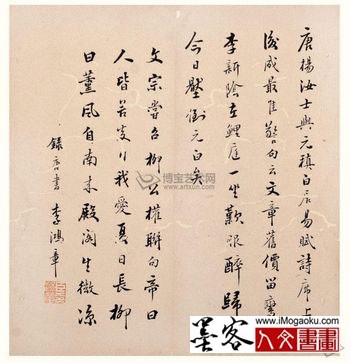 唐楊汝士與元稹白居易賦詩席上
後成最佳警句云文章舊價留鸞
李新陰在鯉庭一坐歎服醉歸
今日壓倒元白矣
文宗嘗召柳公權聯句帝曰
人皆苦炎我愛夏日長柳
曰薰風自南來殿閣生微涼
錄唐書 李鴻章
博宝艺术网
墨客
人文書畫
www.iMogaoku.com